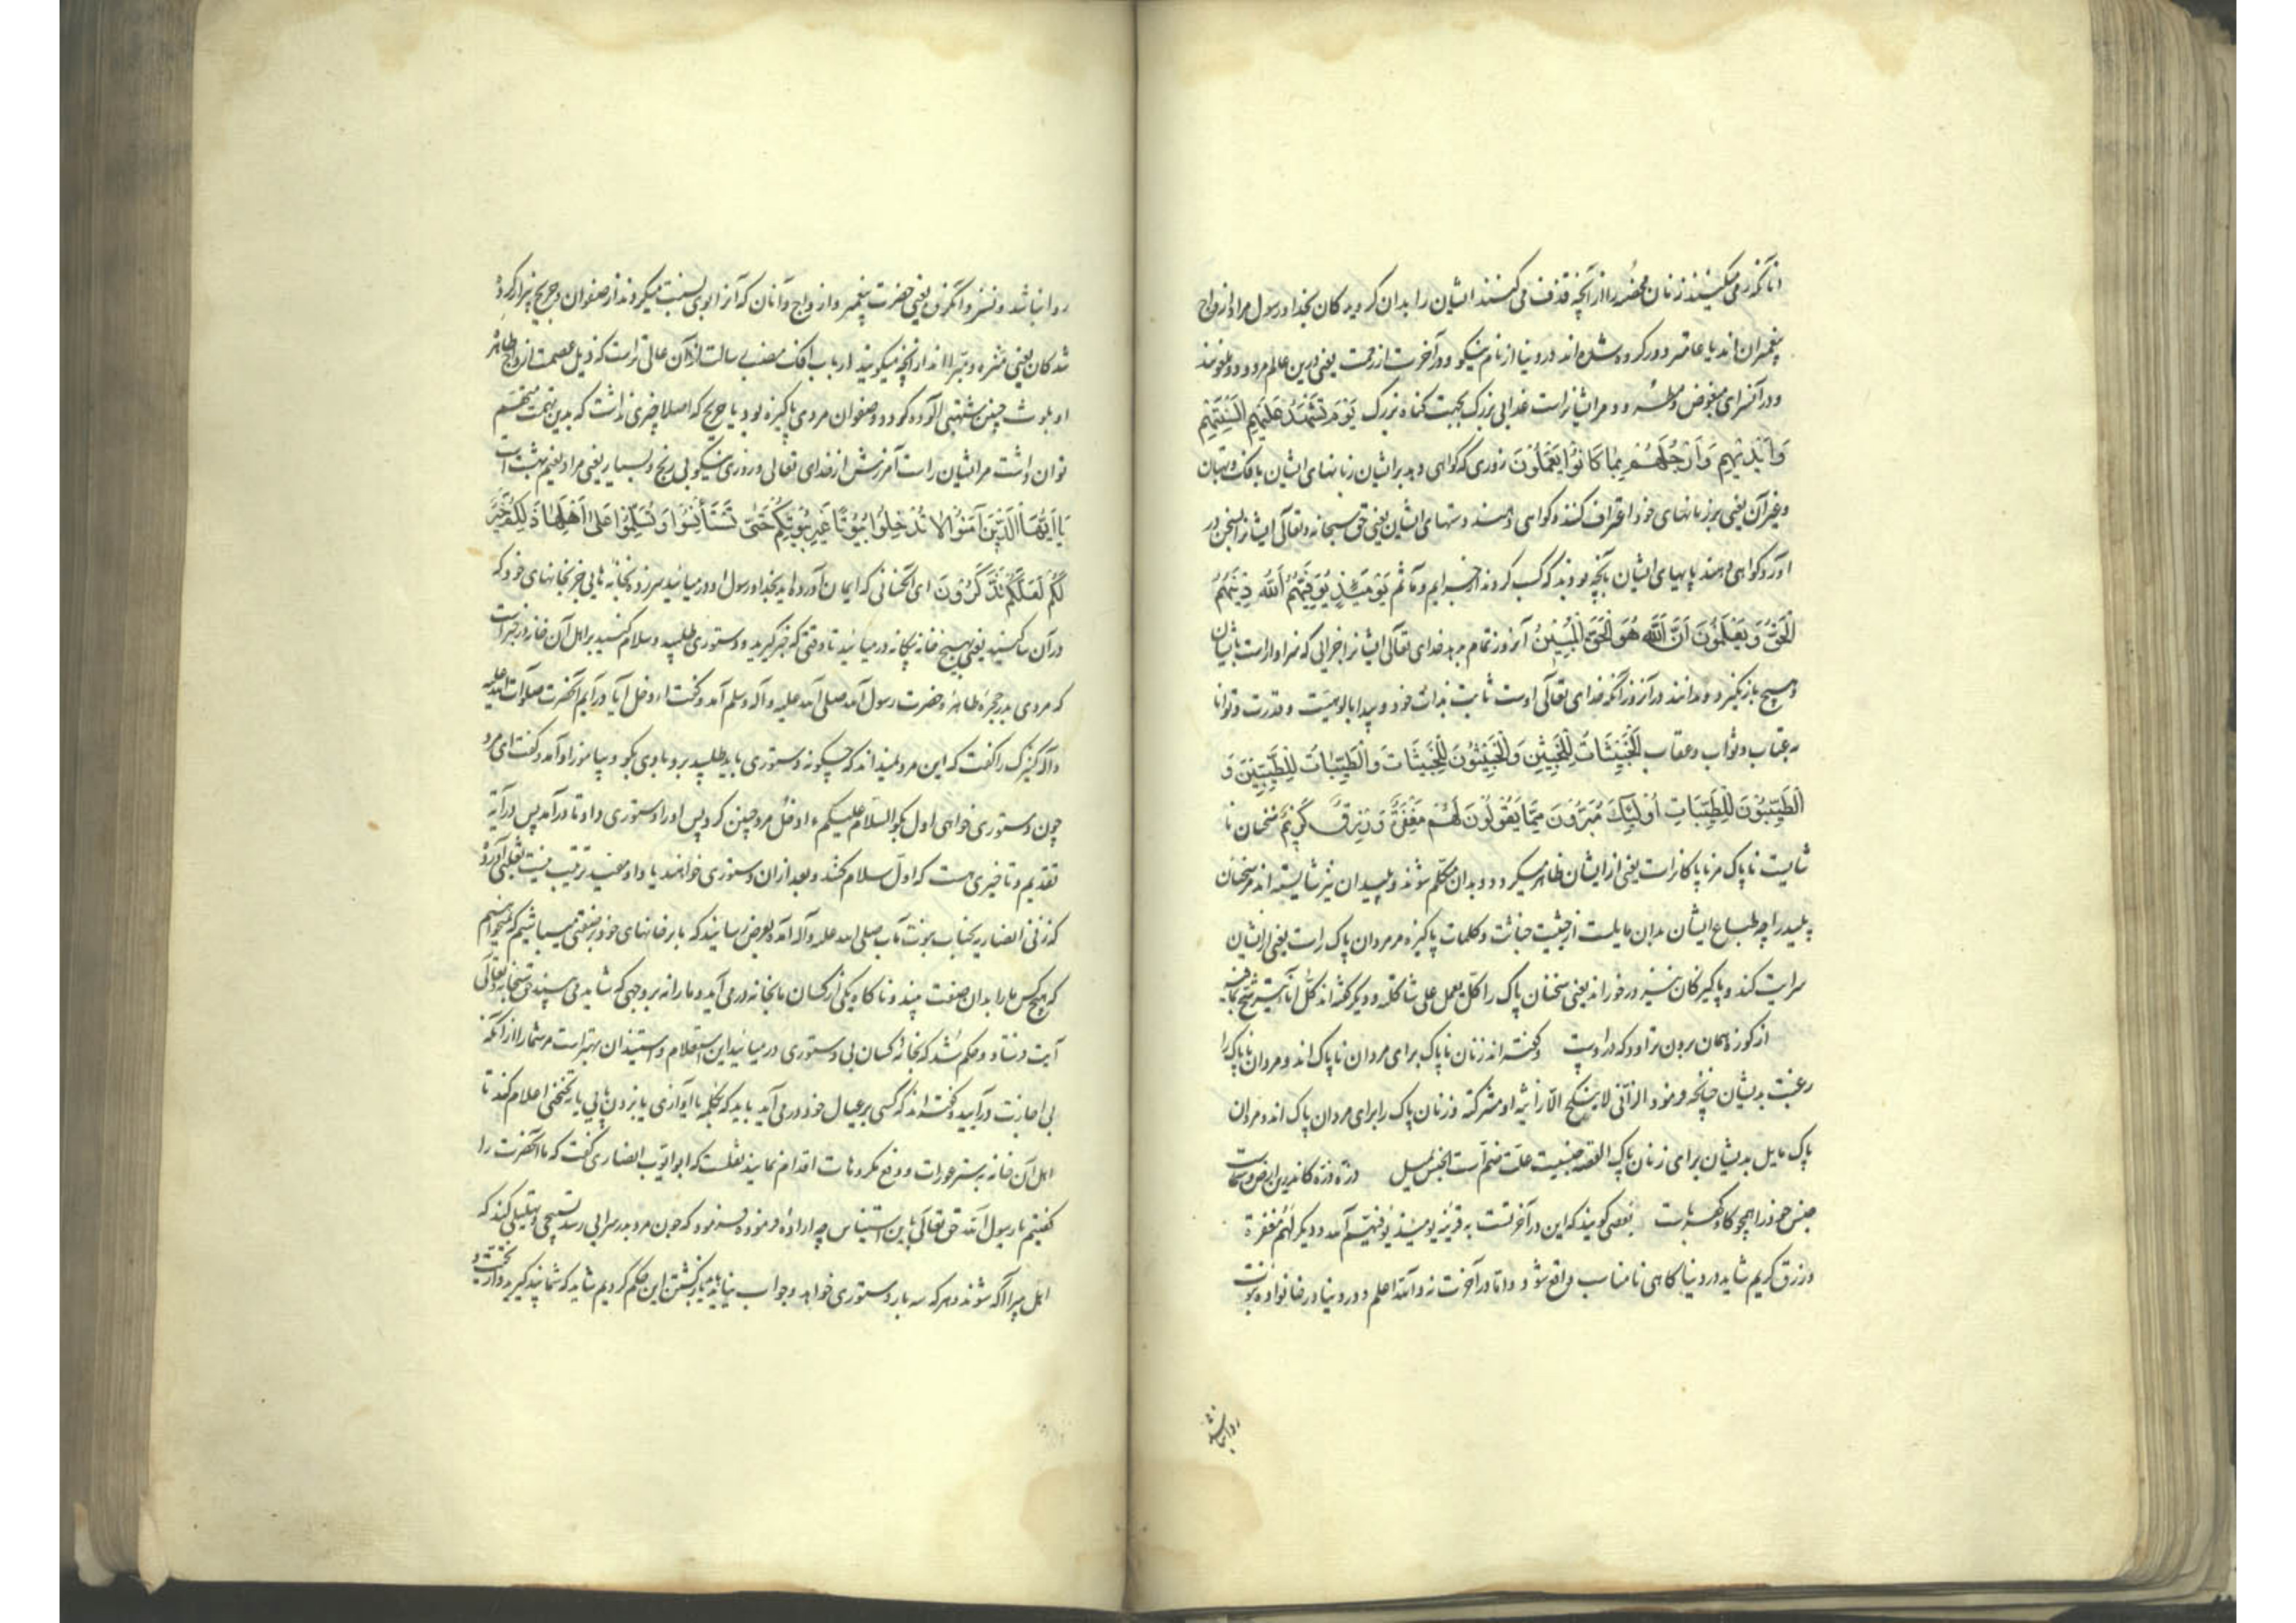 آنانکه رمی میکنند زنان محصنه را از آنچه قذف می کنند ایشان را بدان گرویدگان بخدا و رسول مراد ازواج
پیغمبران اند یا عامتر دور کرده شده اند در دنیا از نام نیکو و در آخرت از رحمت یعنی درین عالم مردود و ملعونند
و در آنسرای مبغوض و مر ایشانراست عذابی بزرگ بجهت گناه بزرگ يَوْمَ تَشْهَدُ عَلَيْهِمْ أَلْسِنَتُهُمْ
وَأَيْدِيهِمْ وَأَرْجُلُهُمْ بِمَا كَانُوا يَعْمَلُونَ روزی که گواهی دهد بر ایشان زبانهای ایشان بافک و بهتان
و غیر آن یعنی بر زبانهای خود اعتراف کنند و گواهی دهند دستهای ایشان یعنی حق سبحانه و تعالی ایشانرا بسخن در
آورد و گواهی دهند پایهای ایشان بآنچه بودند که کسب کردند از جرایم و مآثم يَوْمَئِذٍ يُوَفِّيهِمُ اللَّهُ دِينَهُمُ
الْحَقَّ وَيَعْلَمُونَ أَنَّ اللَّهَ هُوَ الْحَقُّ الْمُبِينُ آنروز تمام بدهد خدای تعالی ایشانرا جزایی که سزاوار است بایشان
و هیچ باز نگیرد و بدانند در آنروز آنکه خدای تعالی اوست ثابت بذات خود و پیدا بالوهیت و قدرت و توانا
به عتاب و ثواب و عقاب الْخَبِيثَاتُ لِلْخَبِيثِينَ وَالْخَبِيثُونَ لِلْخَبِيثَاتِ وَالطَّيِّبَاتُ لِلطَّيِّبِينَ وَ
الطَّيِّبُونَ لِلطَّيِّبَاتِ أُولَئِكَ مُبَرَّءُونَ مِمَّا يَقُولُونَ لَهُمْ مَغْفِرَةٌ وَرِزْقٌ كَرِيمٌ سخنان نا
شایست ناپاک مر ناپاکانراست یعنی از ایشان ظاهر میگردد و بدان متکلم شوند و پلیدان نیز شایسته اند مر سخنان
پلید را چه طباع ایشان بدان مایلست از حیثیت خباثت و کلمات پاکیزه مر مردان پاک راست یعنی از ایشان
سرایت کند و پاکیزکان نیز درخوراند یعنی سخنان پاک را کل یعمل علی شاکلته و دیگر گفته اند کل اناء یترشح بما فیه
از کوزه همان برون تراود که در اوست و گفته اند زنان ناپاک برای مردان ناپاک اند و مردان ناپاک را
رغبت بدیشان چنانچه فرمود الزانی لا ینکح الا زانیة او مشرکة و زنان پاک را برای مردان پاک اند و مردان
پاک مایل بدیشان برای زنان پاک القصه جنسیت علت ضم است الجنس یمیل ذره ذره کاندرین ارض و سماست
جنس خود را همچو کاه و کهرباست بعضی گویند که این در آخرتست به قرینه یومئذ یوفیهم آمد و دیگر لهم مغفرة
و رزق کریم شاید در دنیا کاهی نامناسب واقع شود و اما در آخرت نه و الله اعلم و در دنیا در خانواده نبوت
روا نباشد
روا نباشد و نسزد آنگزن یعنی حضرت پیغمبر و ازواج و آنان که آنرا بوی نسبت میکردند از صفوان و جریح بیزار کرده
شدگان یعنی منزه و مبرا اند از آنچه میگویند ارباب افک منصب رسالت از آن عالی تر است که ذیل عصمت ازواج طاهره
او بلوث چنین تهمتی آلوده گردد و صفوان مردی پاکیزه بود یا جریح که اصلا چیزی نداشت که بدین تهمت متهم
توان داشت مر ایشان راست آمرزش از خدای تعالی و روزی نیکو بی رنج و بسیار یعنی مراد نعیم بهشت است
يَا أَيُّهَا الَّذِينَ آمَنُوا لَا تَدْخُلُوا بُيُوتًا غَيْرَ بُيُوتِكُمْ حَتَّى تَسْتَأْنِسُوا وَتُسَلِّمُوا عَلَى أَهْلِهَا ذَلِكُمْ خَيْرٌ
لَكُمْ لَعَلَّكُمْ تَذَكَّرُونَ ای آنکسانی که ایمان آورده اید بخدا و رسول او در میائید سرزده بخانه هایی جز بخانهای خود که
در آن ساکنید یعنی بهیچ خانه بیگانه در میائید تا وقتی که خبر گیرید و دستوری طلبید و سلام کنید بر اهل آن خانه در خبر است
که مردی بدر حجره طاهره حضرت رسول الله صلی الله علیه و آله وسلم آمد و گفت ءادخل آیا درآیم آنحضرت صلوات الله علیه
و آله کنیزک را گفت که این مرد نمیداند که چگونه دستوری باید طلبید برو با وی بگو و بیاموز او آمد و گفت ای مرد
چون دستوری خواهی اول بگو السلام علیکم ءادخل مرد چنین کرد پس او را دستوری داد تا درآمد پس در آیة
تقدیم و تاخیری هست که اول سلام کنند و بعد از ان دستوری خواهند یا واو مفید ترتیب نیست ثعلبی آورده
که زنی انصاریه بجناب نبوت مآب صلی الله علیه و آله آمد و بعرض رسانید که ما در خانهای خود بر صفتی میباشیم که نمیخواهیم
که هیچکس ما را بدان صفت بیند و ناگاه یکی از کسان ما بخانه در می آید و ما را نه بر وجهی که شاید می بیند حق سبحانه و تعالی
آیت فرستاد و حکم شد که بخانه کسان بی دستوری در میائید این استعلام و استیذان بهتر است مر شما را از آنکه
بی اجازت درآیید و گفته اند که کسی بر عیال خود در می آید باید که بکلمه یا آوازی یا بزدن پایی یا به تنحنحی اعلام کند تا
اهل آن خانه بستر عورات و دفع مکروهات اقدام نمایند نقلست که ابو ایوب انصاری گفت که ما آنحضرت را
گفتیم یا رسول الله حق تعالی باین استیناس چه اراده فرموده فرمود که چون مرد بدر سرایی رسد تسبیحی و تهلیلی کند که
اهل سرا آگه شوند و هر که سه بار دستوری خواهد و جواب نیاید باز گشتن این حکم کردیم شاید که شما پند گیرید